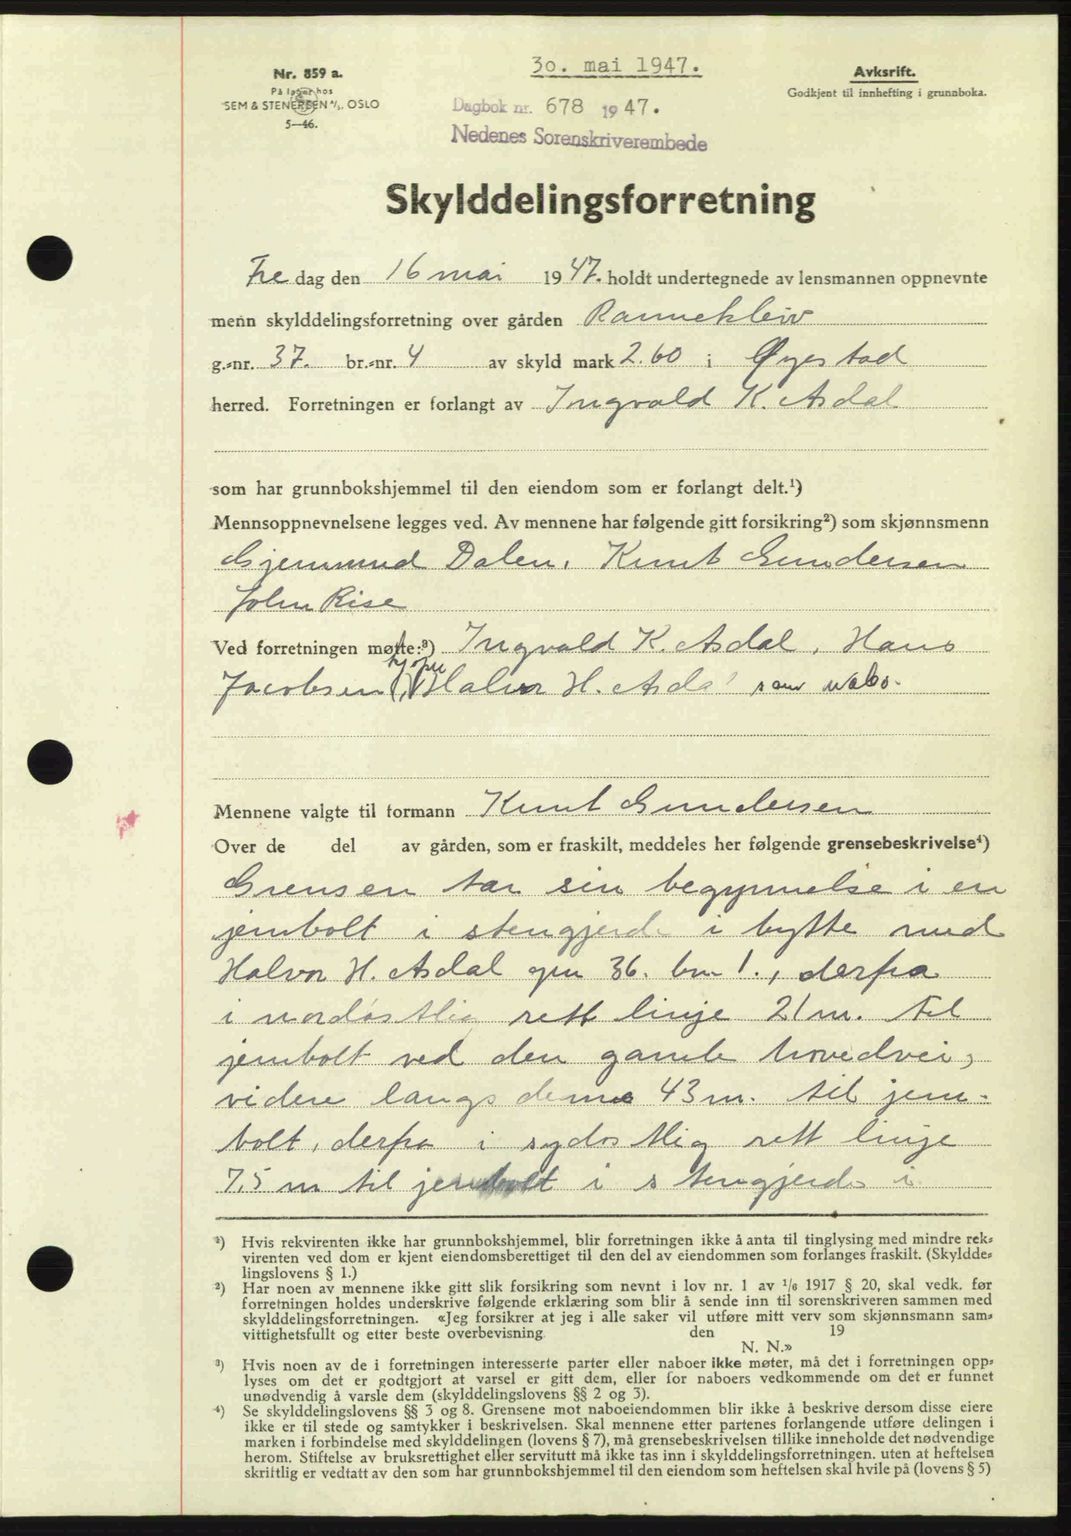 Nr. 859 a.
På lager hos
SEM & STENERSEN A/S. OSLO
5—46.
30. mai 1947.
Dagbok nr. 678 1947.
Nedenes Sorenskriverembede
Avksrift.
Godkjent til innhefting i grunnboka.
Skylddelingsforretning
Fre dag den 16 mai 1947. holdt undertegnede av lensmannen oppnevnte
menn skylddelingsforretning over gården Rannekleiv
g.-nr. 37. br.-nr. 4 av skyld mark 2.60 i Øyestad
herred. Forretningen er forlangt av Ingvald K. Asdal
som har grunnbokshjemmel til den eiendom som er forlangt delt.¹)
Mennsoppnevnelsene legges ved. Av mennene har følgende gitt forsikring²) som skjønnsmenn
Gjermund Dalen, Knut Gundersen
John Rise
Ved forretningen møtte:³) Ingvald K. Asdal, Hans
Jacobsen (kjøper) Halvor H. Asdal som nabo.
Mennene valgte til formann Knut Gundersen
Over de del av gården, som er fraskilt, meddeles her følgende grensebeskrivelse⁴)
Grensen tar sin begynnelse i en
jernbolt i stengjerde i bytte med
Halvor H. Asdal gnr 36. bnr 1., derfra
i nordøstlig rett linje 21 m. til
jernbolt ved den gamle hovedvei,
videre langs denne 43 m. til jern-
bolt, derfra i sydøstlig rett linje
7,5 m til jernbolt i stengjerde i
¹) Hvis rekvirenten ikke har grunnbokshjemmel, blir forretningen ikke å anta til tinglysing med mindre rek-
virenten ved dom er kjent eiendomsberettiget til den del av eiendommen som forlanges fraskilt. (Skyldde-
lingslovens § 1.)
²) Har noen av mennene ikke gitt slik forsikring som nevnt i lov nr. 1 av 1/6 1917 § 20, skal vedk. før
forretningen holdes underskrive følgende erklæring som blir å sende inn til sorenskriveren sammen med
skylddelingsforretningen. «Jeg forsikrer at jeg i alle saker vil utføre mitt verv som skjønnsmann sam-
vittighetsfullt og etter beste overbevisning den 19
N. N.»
³) Hvis noen av de i forretningen interesserte parter eller naboer ikke møter, må det i forretningen opp-
lyses om det er godtgjort at varsel er gitt dem, eller for naboers vedkommende om det er funnet
unødvendig å varsle dem (skylddelingslovens §§ 2 og 3).
⁴) Se skylddelingslovens §§ 3 og 8. Grensene mot naboeiendommen blir ikke å beskrive dersom disse eiere
ikke er til stede og samtykker i beskrivelsen. Skal mennene etter partenes forlangende utføre delingen i
marken i forbindelse med skylddelingen (lovens § 7), må grensebeskrivelsen tillike inneholde det nødvendige
herom. Stiftelse av bruksrettighet eller servitutt må ikke tas inn i skylddelingsforretningen. uten at heftelsen
skriftlig er vedtatt av den som har grunnbokshjemmel til den eiendom som heftelsen skal hvile på (lovens § 5)